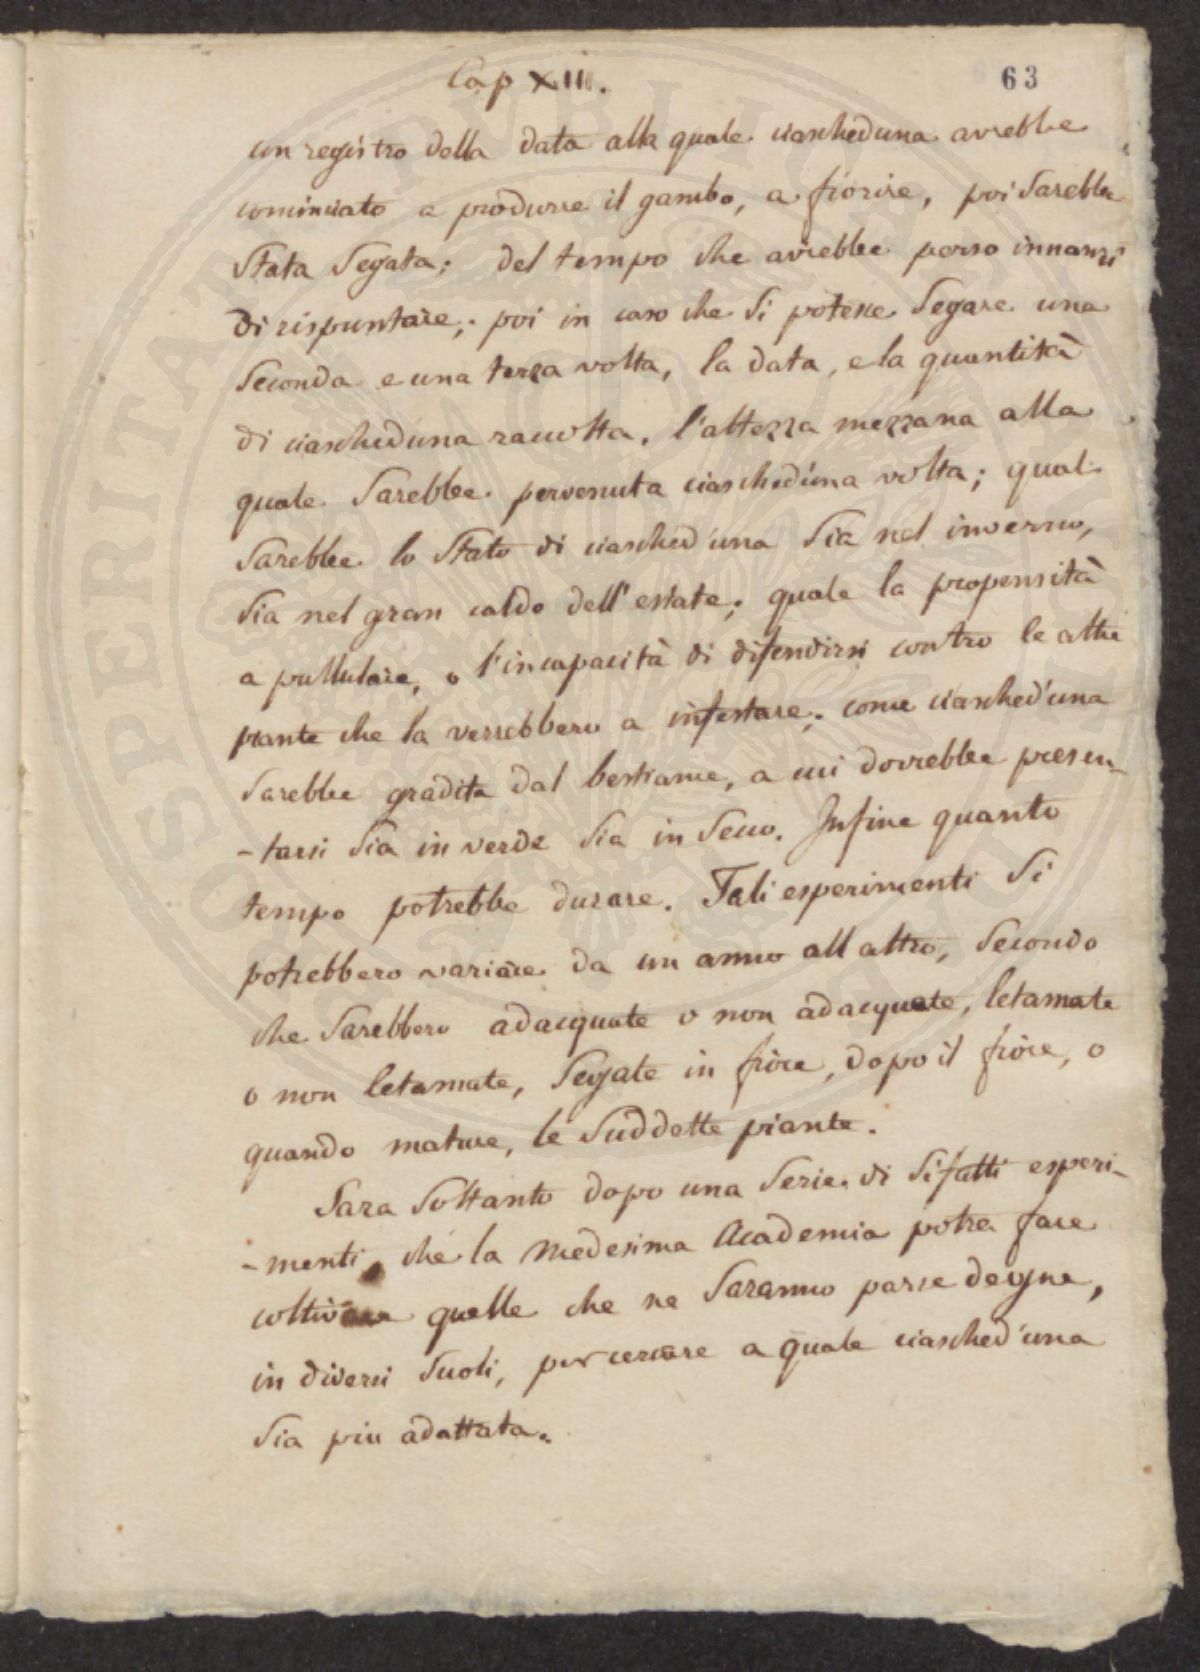 Cap XIII.
63
un registro della data alla quale ciascheduna avrebbe
cominciato a produrre il gambo, a fiorire, poi sarebbe
stata segata; del tempo che avrebbe perso innanzi
di rispuntare; poi in caso che si potesse segare una
seconda e una terza volta, la data, e la quantità
di ciascheduna raccolta. l'altezza mezzana alla
quale sarebbe pervenuta ciasched'una volta; qual
sarebbe lo stato di ciasched'una sia nel inverno,
sia nel gran caldo dell'estate; quale la propensità
a pullulare, o l'incapacità di difendirsi contro le altre
piante che la verrebbero a infestare; come ciasched'una
sarebbe gradita dal bestiame, a cui dovrebbe presen-
-tarsi sia in verde sia in secco. Infine quanto
tempo potrebbe durare. Tali esperimenti si
potrebbero variare da un anno all altro, secondo
che sarebbero adacquate o non adacquate, letamate
o non letamate, segate in fiore, dopo il fiore, o
quando mature, le suddette piante.
Sara soltanto dopo una serie di sifatti esperi-
-menti, che la medesima Academia potra fare
coltivare quelle che ne saranno parse degne,
in diversi suoli, per cercare a quale ciasched'una
sia piu adattata.
PROSPERITATI PUBLICAE